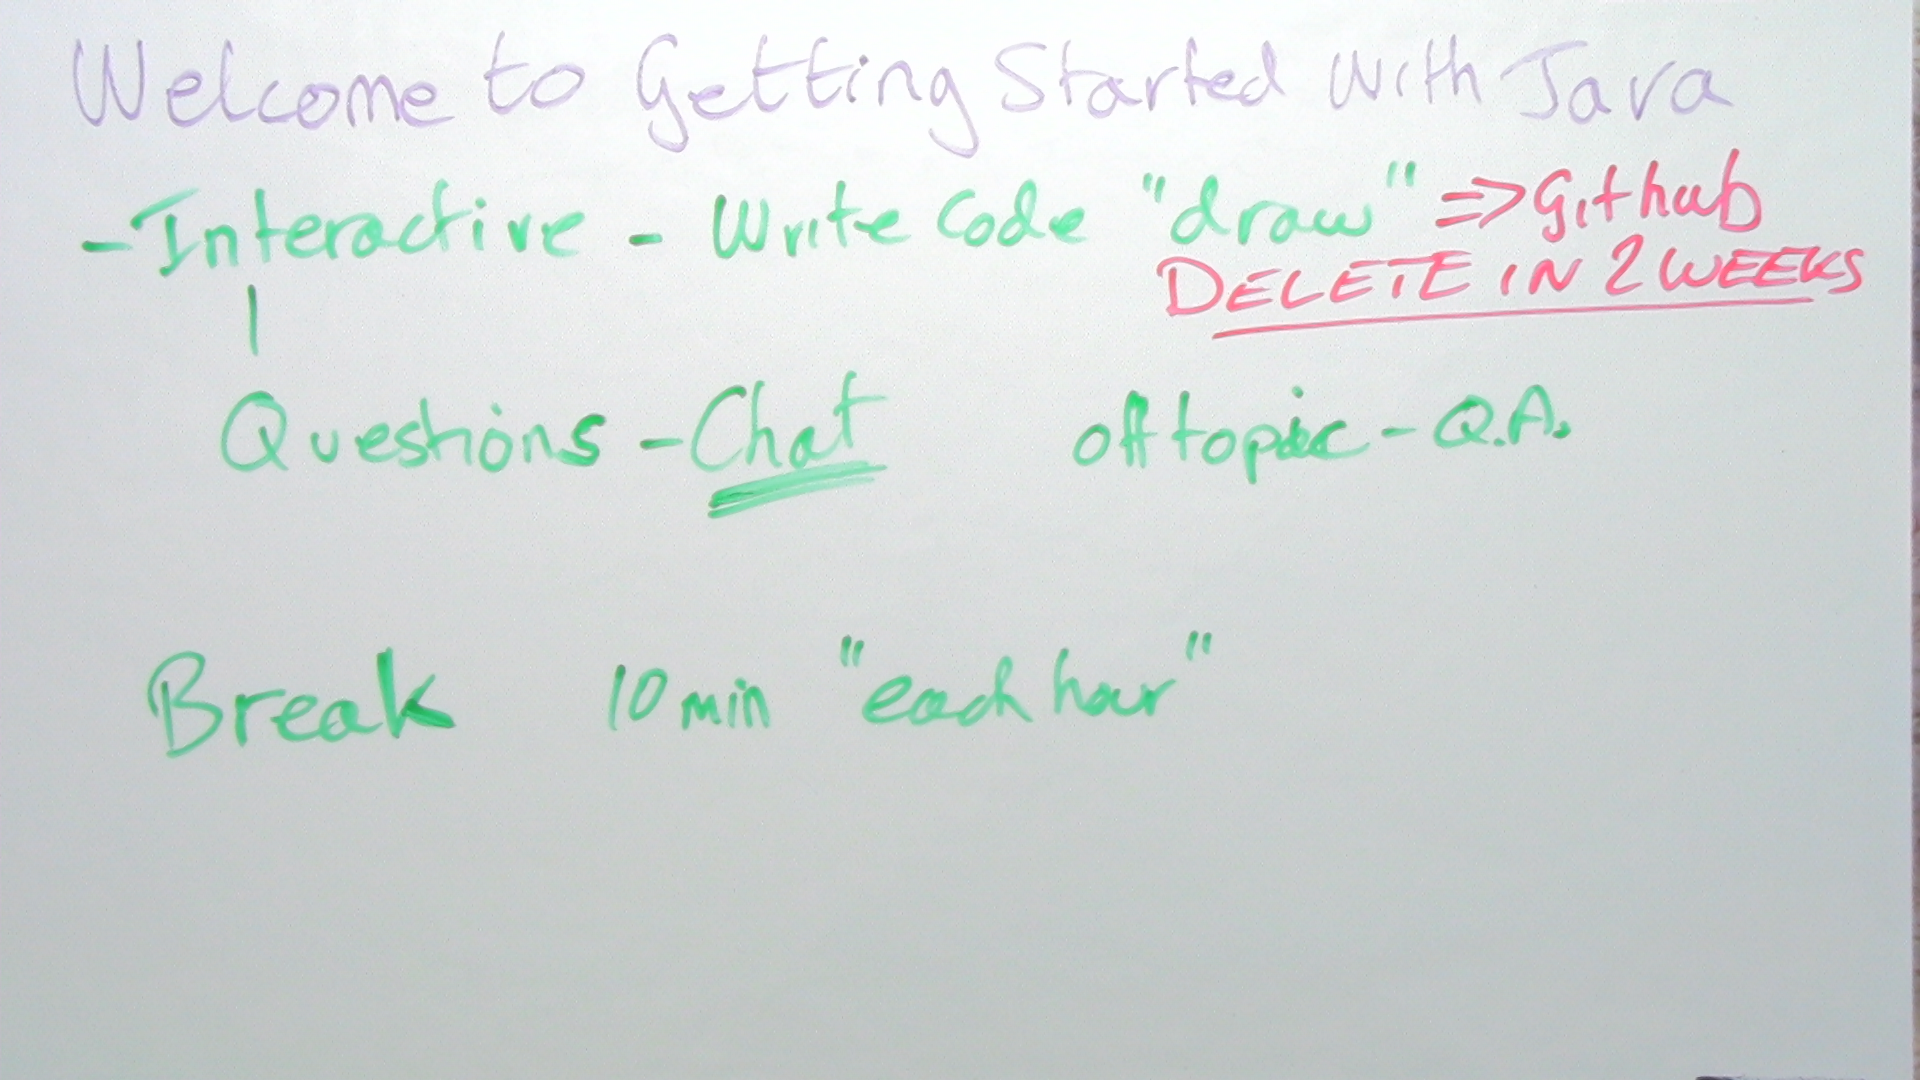 Welcome to Getting Started With Java
- Interactive - Write Code "draw" => Github
DELETE IN 2 WEEKS
Questions - Chat off topic - Q.A.
Break 10 min "each hour"